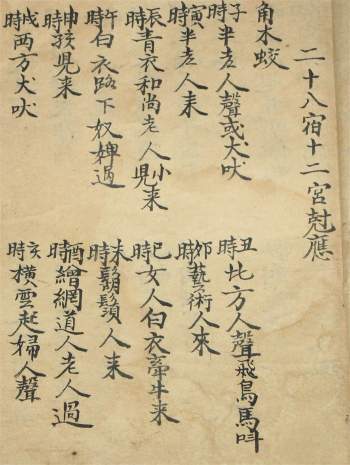 二十八宿十二宮尅應
角木蛟
子時半老人聲或犬吠
丑時北方人聲飛鳥馬叫
寅時半老人来
卯時藝術人來
辰時青衣和尚老人小兒来
巳時女人白衣牛来
午時白衣路下奴婢過
未時鬍鬚人来
申時孩兒来
酉時繒網道人老人過
戌時两方犬吠
亥時橫雲起婦人聲